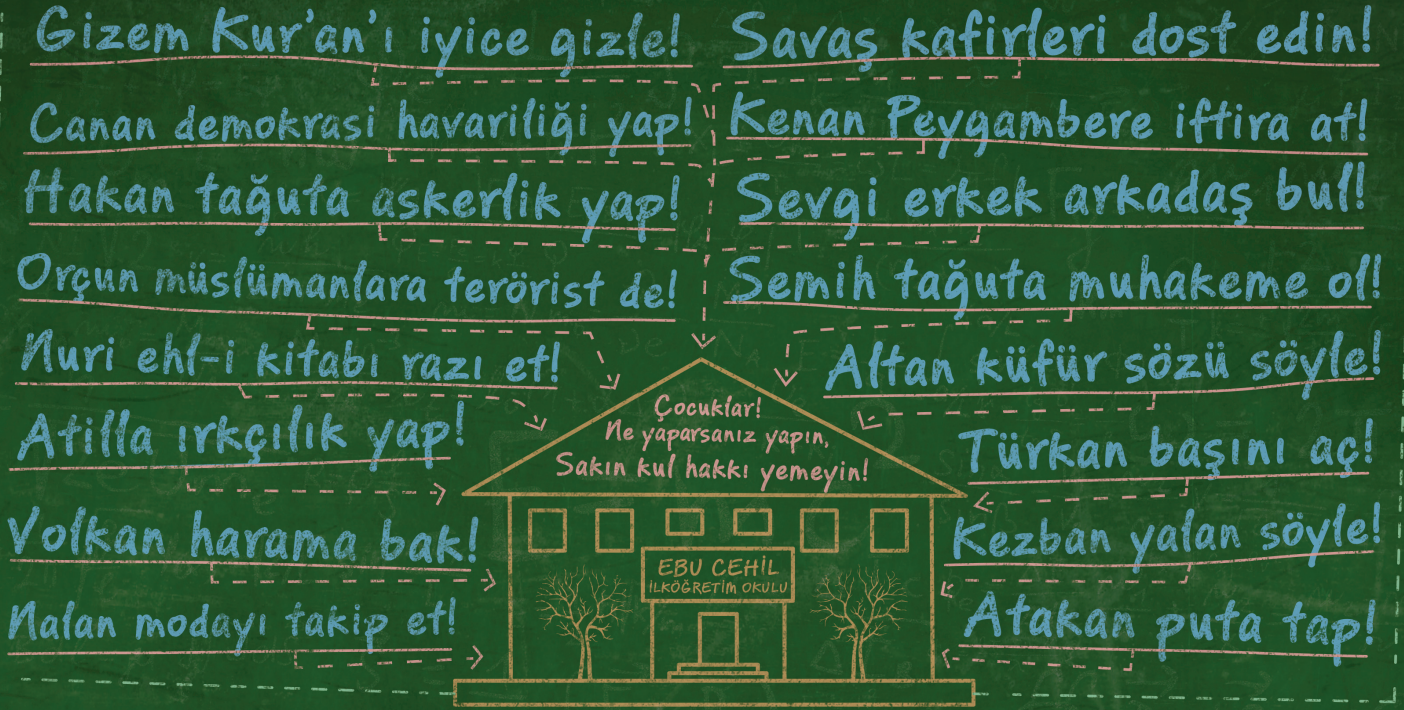 Gizem Kur'an'ı iyice gizle!
Canan demokrasi havariliği yap!
Hakan tağuta askerlik yap!
Orçun müslümanlara terörist de!
Nuri ehl-i kitabı razı et!
Atilla ırkçılık yap!
Volkan harama bak!
Nalan modayı takip et!
Savaş kafirleri dost edin!
Kenan Peygambere iftira at!
Sevgi erkek arkadaş bul!
Semih tağuta muhakeme ol!
Altan küfür sözü söyle!
Türkan başını aç!
Kezban yalan söyle!
Atakan puta tap!
Çocuklar!
Ne yaparsanız yapın,
Sakın kul hakkı yemeyin!
EBU CEHİL
İLKÖĞRETİM OKULU